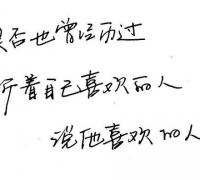 是否也曾经历过
听着自己喜欢的人
说他喜欢的人